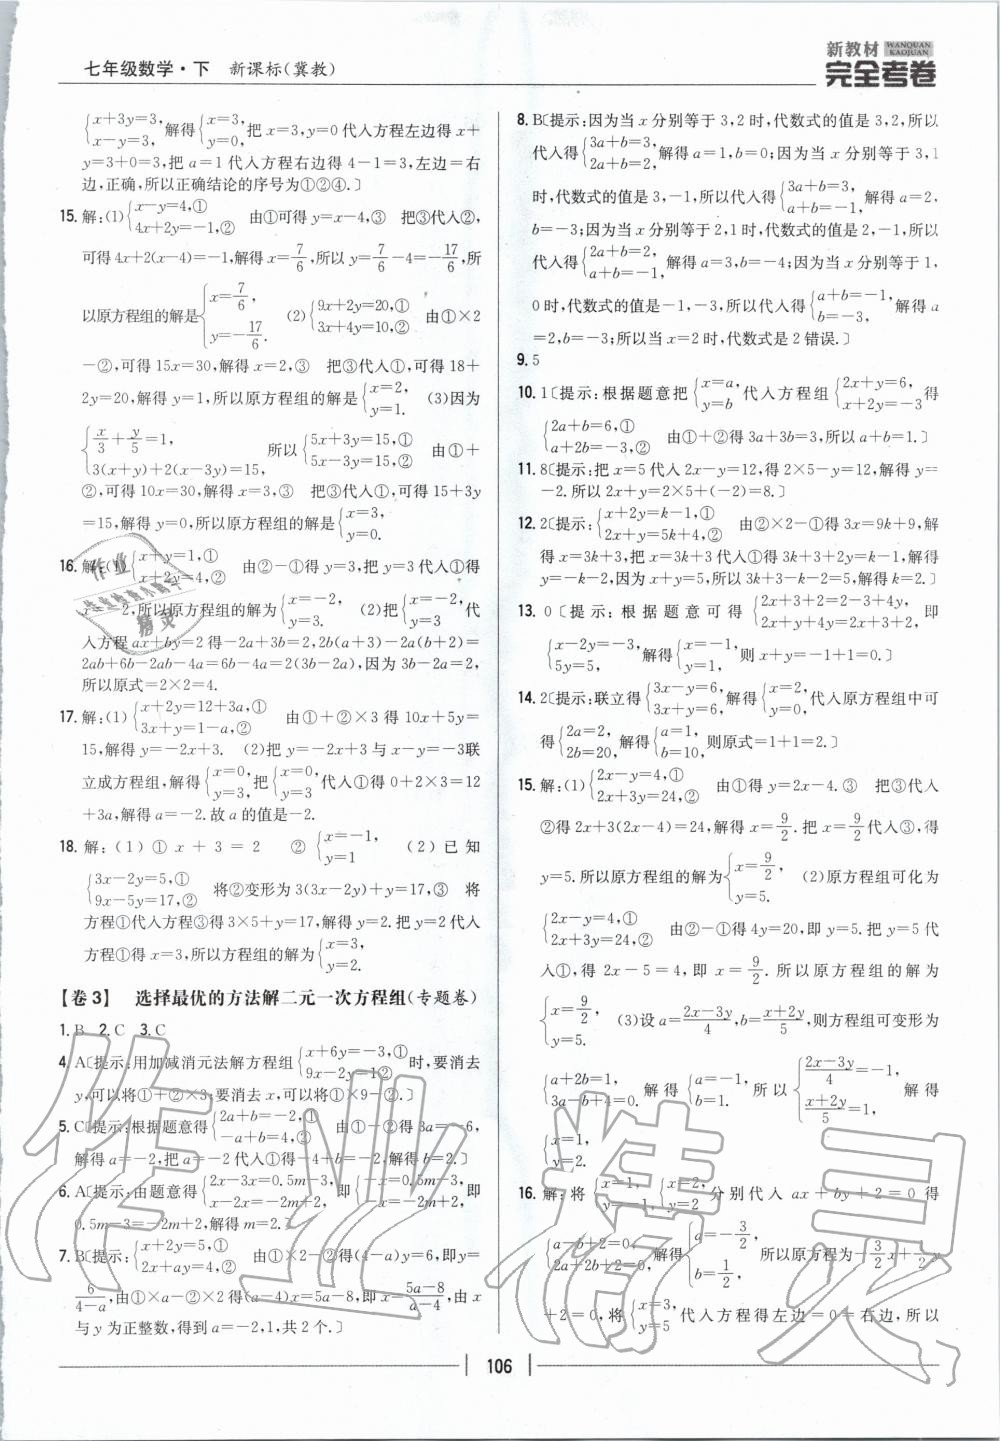 七年级数学·下 新课标(冀教)
新教材 WANQUAN KAOJUAN
完全考卷
{x+3y=3, x-y=3, 解得{x=3, y=0, 把x=3,y=0代入方程左边得x+
y=3+0=3,把a=1代入方程右边得4-1=3,左边=右
边,正确,所以正确结论的序号为①②④.〕
15.解:(1){x-y=4,① 4x+2y=-1,② 由①可得y=x-4,③ 把③代入②,
可得4x+2(x-4)=-1,解得x=7/6,所以y=7/6-4=-17/6,所
以原方程组的解是{x=7/6, y=-17/6. (2){9x+2y=20,① 3x+4y=10,② 由①×2
-②,可得15x=30,解得x=2,③ 把③代入①,可得18+
2y=20,解得y=1,所以原方程组的解是{x=2, y=1. (3)因为
{x/3+y/5=1, 3(x+y)+2(x-3y)=15, 所以{5x+3y=15,① 5x-3y=15,② 由①+
②,可得10x=30,解得x=3,③ 把③代入①,可得15+3y
=15,解得y=0,所以原方程组的解是{x=3, y=0.
16.解:(1){x+y=1,① x+2y=4,② 由②-①得y=3,把y=3代入①得
x=-2,所以原方程组的解为{x=-2, y=3. (2)把{x=-2, y=3 代
入方程ax+by=2得-2a+3b=2,2b(a+3)-2a(b+2)=
2ab+6b-2ab-4a=6b-4a=2(3b-2a),因为3b-2a=2,
所以原式=2×2=4.
17.解:(1){x+2y=12+3a,① 3x+y=1-a,② 由①+②×3得10x+5y=
15,解得y=-2x+3. (2)把y=-2x+3与x-y=-3联
立成方程组,解得{x=0, y=3, 把{x=0, y=3 代入①得0+2×3=12
+3a,解得a=-2.故a的值是-2.
18.解:(1)①x+3=2 ②{x=-1, y=1 (2)已知
{3x-2y=5,① 9x-5y=17,② 将②变形为3(3x-2y)+y=17,③ 将
方程①代入方程③得3×5+y=17,解得y=2.把y=2代入
方程①得x=3,所以方程组的解为{x=3, y=2.
【卷3】 选择最优的方法解二元一次方程组(专题卷)
1.B 2.C 3.C
4.A〔提示:用加减消元法解方程组{x+6y=-3,① 9x-2y=1② 时,要消去
y,可以将①+②×3;要消去x,可以将①×9-②.〕
5.C〔提示:根据题意得{2a+b=-2,① -a+b=4,② 由①-②得3a=-6,
解得a=-2,把a=-2代入①得-4+b=-2,解得b=2.〕
6.A〔提示:由题意得{2x-3x=0.5m-3, x-2x=-2m+2, 即{-x=0.5m-3, -x=-2m+2, 即
0.5m-3=-2m+2,解得m=2.〕
7.B〔提示:{x+2y=5,① 2x+ay=4,② 由①×2-②得(4-a)y=6,即y=
6/(4-a),由①×a-②×2得(a-4)x=5a-8,即x=(5a-8)/(a-4),由x
与y为正整数,得到a=-2,1,共2个.〕
8.B〔提示:因为当x分别等于3,2时,代数式的值是3,2,所以
代入得{3a+b=3, 2a+b=2, 解得a=1,b=0;因为当x分别等于3,1
时,代数式的值是3,-1,所以代入得{3a+b=3, a+b=-1, 解得a=2,
b=-3;因为当x分别等于2,1时,代数式的值是2,-1,所以
代入得{2a+b=2, a+b=-1, 解得a=3,b=-4;因为当x分别等于1,
0时,代数式的值是-1,-3,所以代入得{a+b=-1, b=-3, 解得a
=2,b=-3;所以当x=2时,代数式是2错误.〕
9.5
10.1〔提示:根据题意把{x=a, y=b 代入方程组{2x+y=6, x+2y=-3 得
{2a+b=6,① a+2b=-3,② 由①+②得3a+3b=3,所以a+b=1.〕
11.8〔提示:把x=5代入2x-y=12,得2×5-y=12,解得y=
-2.所以2x+y=2×5+(-2)=8.〕
12.2〔提示:{x+2y=k-1,① 2x+y=5k+4,② 由②×2-①得3x=9k+9,解
得x=3k+3,把x=3k+3代入①得3k+3+2y=k-1,解得
y=-k-2,因为x+y=5,所以3k+3-k-2=5,解得k=2.〕
13.0〔提示:根据题意可得{2x+3+2=2-3+4y, 2x+y+4y=2x+3+2, 即
{x-2y=-3, 5y=5, 解得{x=-1, y=1, 则x+y=-1+1=0.〕
14.2〔提示:联立得{3x-y=6, 3x+y=6, 解得{x=2, y=0, 代入原方程组中可
得{2a=2, 2b=20, 解得{a=1, b=10, 则原式=1+1=2.〕
15.解:(1){2x-y=4,① 2x+3y=24,② 由①得y=2x-4.③ 把③代入
②得2x+3(2x-4)=24,解得x=9/2.把x=9/2代入③,得
y=5.所以原方程组的解为{x=9/2, y=5. (2)原方程组可化为
{2x-y=4,① 2x+3y=24,② 由②-①得4y=20,即y=5.把y=5代
入①,得2x-5=4,即x=9/2.所以原方程组的解为
{x=9/2, y=5. (3)设a=(2x-3y)/4,b=(x+2y)/5,则方程组可变形为
{a+2b=1, 3a-b+4=0. 解得{a=-1, b=1. 所以{(2x-3y)/4=-1, (x+2y)/5=1, 解得
{x=1, y=2.
16.解:将{x=1, y=-1, {x=2, y=2 分别代入ax+by+2=0得
{a-b+2=0, 2a+2b+2=0, 解得{a=-3/2, b=1/2, 所以原方程为-3/2x+1/2
+2=0,将{x=3, y=5 代入方程得左边=0=右边,所以
106
作业精灵